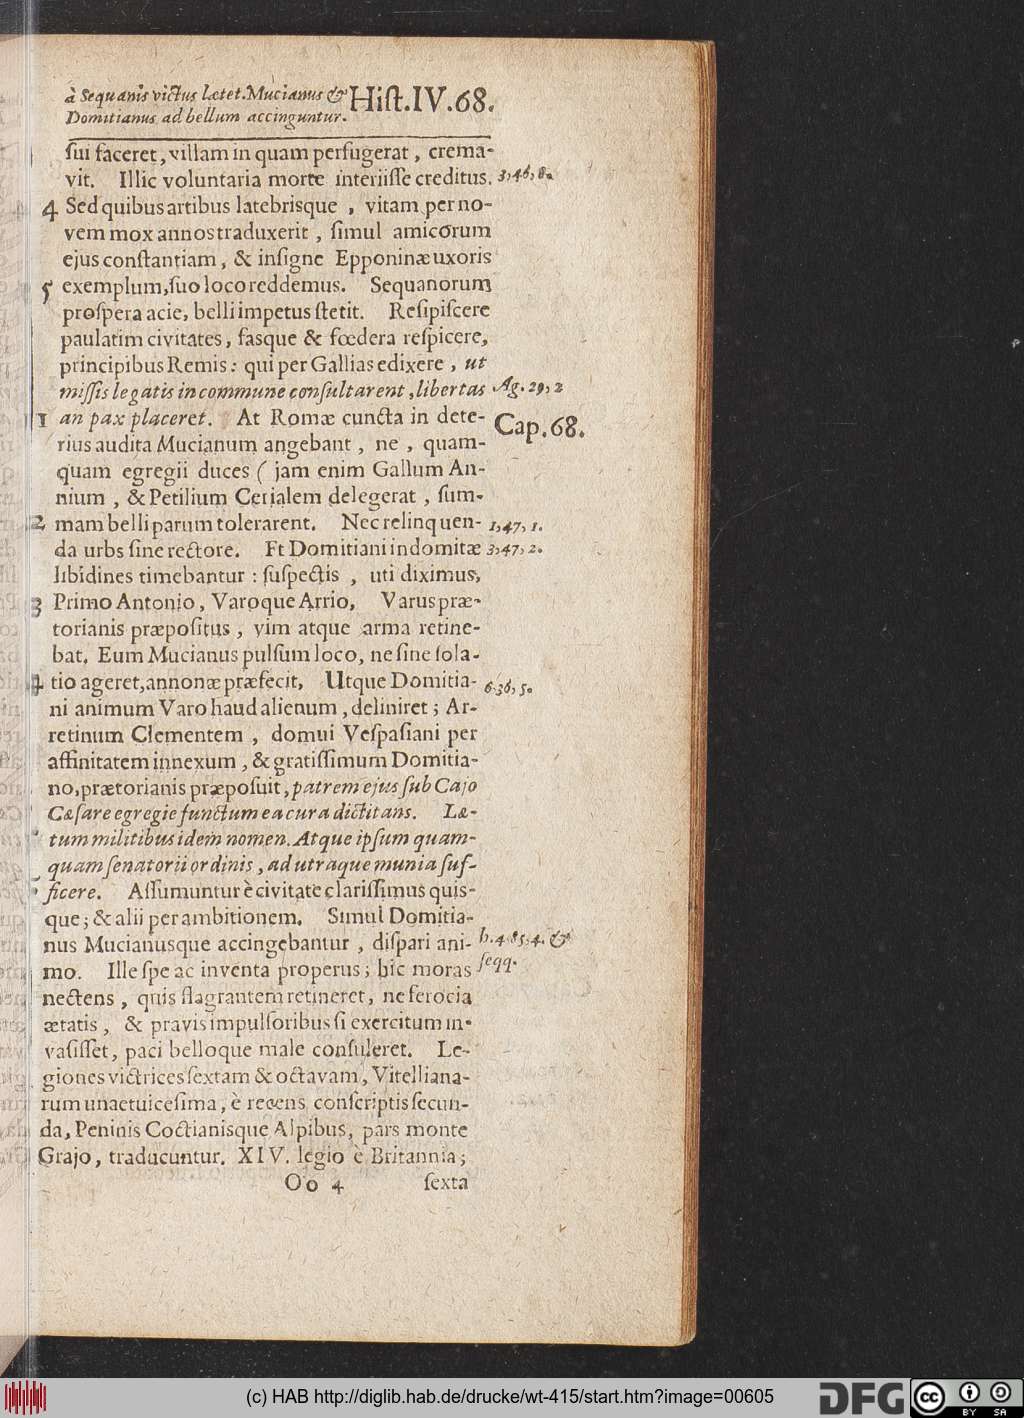 à Sequanis victus latet. Mucianus &
Domitianus ad bellum accinguntur.
Hiſt. IV. 68.
ſui faceret, villam in quam perfugerat, crema-
vit. Illic voluntaria morte interiiſſe creditus. 3, 46, 8.
4 Sed quibus artibus latebrisque, vitam per no-
vem mox annos traduxerit, ſimul amicorum
ejus conſtantiam, & inſigne Epponinæ uxoris
5 exemplum, ſuo loco reddemus. Sequanorum
proſpera acie, belli impetus ſtetit. Reſipiſcere
paulatim civitates, fasque & fœdera reſpicere,
principibus Remis: qui per Gallias edixere, ut
miſſis legatis in commune conſultarent, libertas Ag. 29, 2
1 an pax placeret. At Romæ cuncta in dete- Cap. 68.
rius audita Mucianum angebant, ne, quam-
quam egregii duces ( jam enim Gallum An-
nium, & Petilium Cerialem delegerat, ſum-
2 mam belli parum tolerarent. Nec relinquen- 1, 47, 1.
da urbs ſine rectore. Et Domitiani indomitæ 3, 47, 2.
libidines timebantur: ſuſpectis, uti diximus,
3 Primo Antonio, Varoque Arrio, Varus præ-
torianis præpoſitus, vim atque arma retine-
bat. Eum Mucianus pulſum loco, ne ſine ſola-
4 tio ageret, annonæ præfecit. Utque Domitia- 6. 36, 5.
ni animum Varo haud alienum, deliniret; Ar-
retinum Clementem, domui Veſpaſiani per
affinitatem innexum, & gratiſſimum Domitia-
no, prætorianis præpoſuit, patrem ejus ſub Cajo
Cæſare egregie functum ea cura dictitans. Læ-
tum militibus idem nomen. Atque ipſum quam-
quam ſenatorii ordinis, ad utraque munia ſuf-
ficere. Aſſumuntur è civitate clariſſimus quis-
que; & alii per ambitionem. Simul Domitia-
nus Mucianusque accingebantur, diſpari ani- h. 4. 85, 4. &
mo. Ille ſpe ac inventa properus; hic moras ſeqq.
nectens, quis flagrantem retineret, ne ferocia
ætatis, & pravis impulſoribus ſi exercitum in-
vaſiſſet, paci belloque male conſuleret. Le-
giones victrices ſextam & octavam, Vitelliana-
rum unaetuiceſima, è recens conſcriptis ſecun-
da, Peninis Coctianisque Alpibus, pars monte
Grajo, traducuntur. XIV. legio è Britannia;
Oo 4 ſexta
(c) HAB http://diglib.hab.de/drucke/wt-415/start.htm?image=00605
DFG
cc BY SA